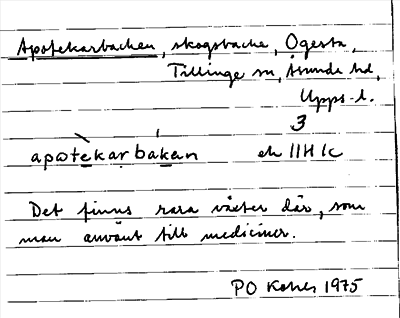 Apotekarbacken, skogsbacke, Ögersta,
Tillinge sn, Åsunda hd,
Upps. l.
3
apotekarbakan ek II H K
Det finns rara växter där, som
man använt till mediciner.
PO 1975